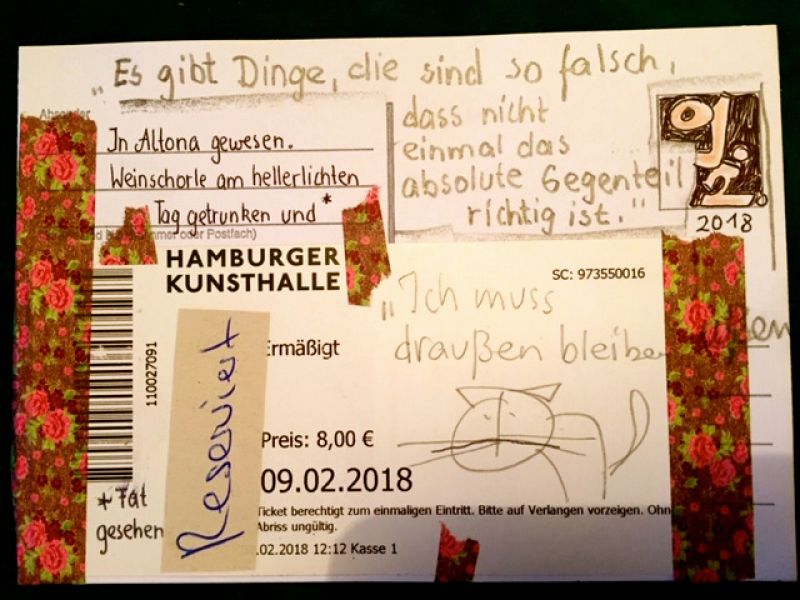 „Es gibt Dinge, die sind so falsch,
dass nicht
einmal das
absolute Gegenteil
richtig ist."
Absender
In Altona gewesen.
Weinschorle am hellerlichten
Tag getrunken und *
oder Postfach)
2018
HAMBURGER
KUNSTHALLE
SC: 973550016
„Ich muss
draußen bleiben
110027091
Reserviert
Ermäßigt
Preis: 8,00 €
09.02.2018
* Tat
gesehen
Ticket berechtigt zum einmaligen Eintritt. Bitte auf Verlangen vorzeigen. Ohn
Abriss ungültig.
.02.2018 12:12 Kasse 1